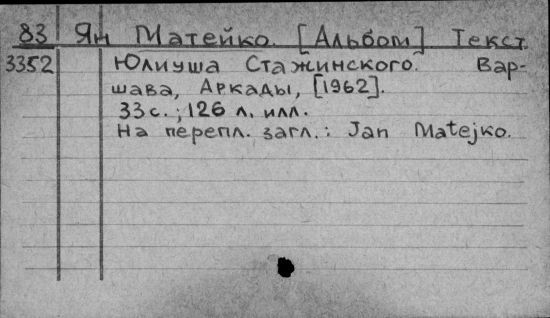 83 Ян Матейко. [Альбом] Текст
3352 Юлиуша Стажинского. Вар-
шава, Аркады, [1962].
33 с.; 126 л. илл.
На перепл. загл.: Jan Matejko.